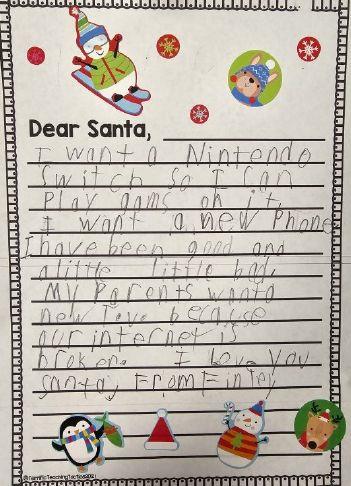 Dear Santa,
I want a Nintendo
Switch so I can
Play gams on it.
I want a new Phone
I have been good and
a little little bad.
My Parents want a
new T.v. because
our internet is
broken. I love you
santa, From Finley
©TerrificTeachingTactics2021